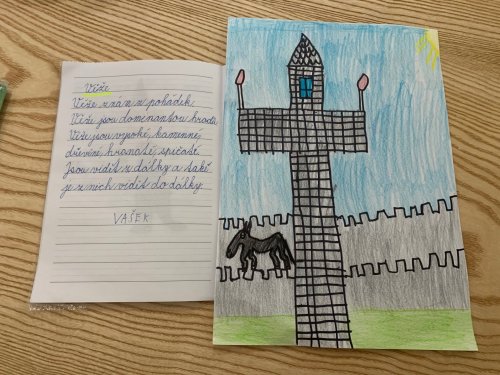 Věže
Věže znám z pohádek.
Věže jsou dominantou hradu.
Věže jsou vysoké, kamenné
dřevěné, hranaté, špičaté.
Jsou vidět z dálky a také
je z nich vidět do dálky.
VAŠEK